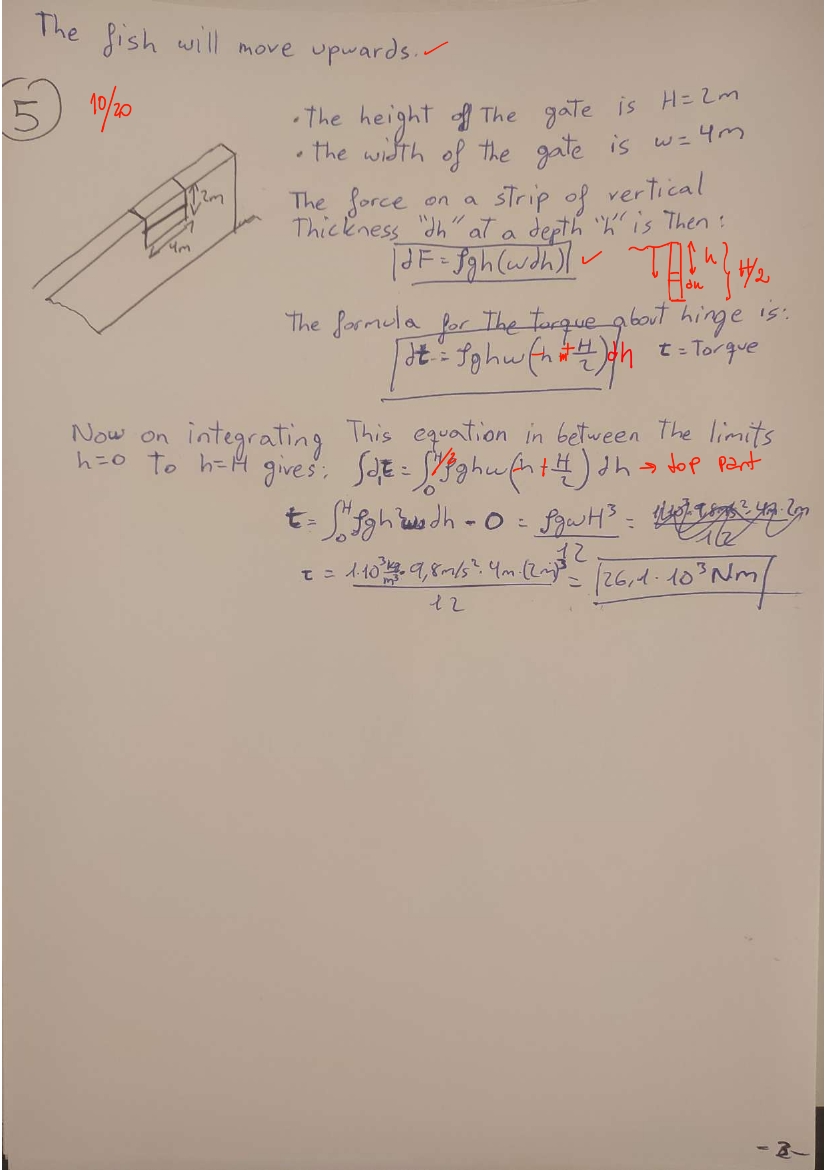 The fish will move upwards. ✓
5 10/20
• the height of The gate is H = 2m
• the width of the gate is w = 4m
2m
4m
The force on a strip of vertical
Thickness "dh" at a depth "h" is Then:
dF = ρgh(wdh) ✓ h dh H/2
The formula for The torque about hinge is:
dτ = ρghw(-h + H/2)dh τ = Torque
Now on integrating This equation in between The limits
h=0 To h=H gives: ∫dτ = ∫₀^H/2 ρghw(-h + H/2) dh → top part
τ = ∫₀^H ρgh²w dh - 0 = ρgwH³/12 =
τ = 1·10³ kg/m³ · 9,8m/s² · 4m · (2m)³/12 = 26,1 · 10³ Nm